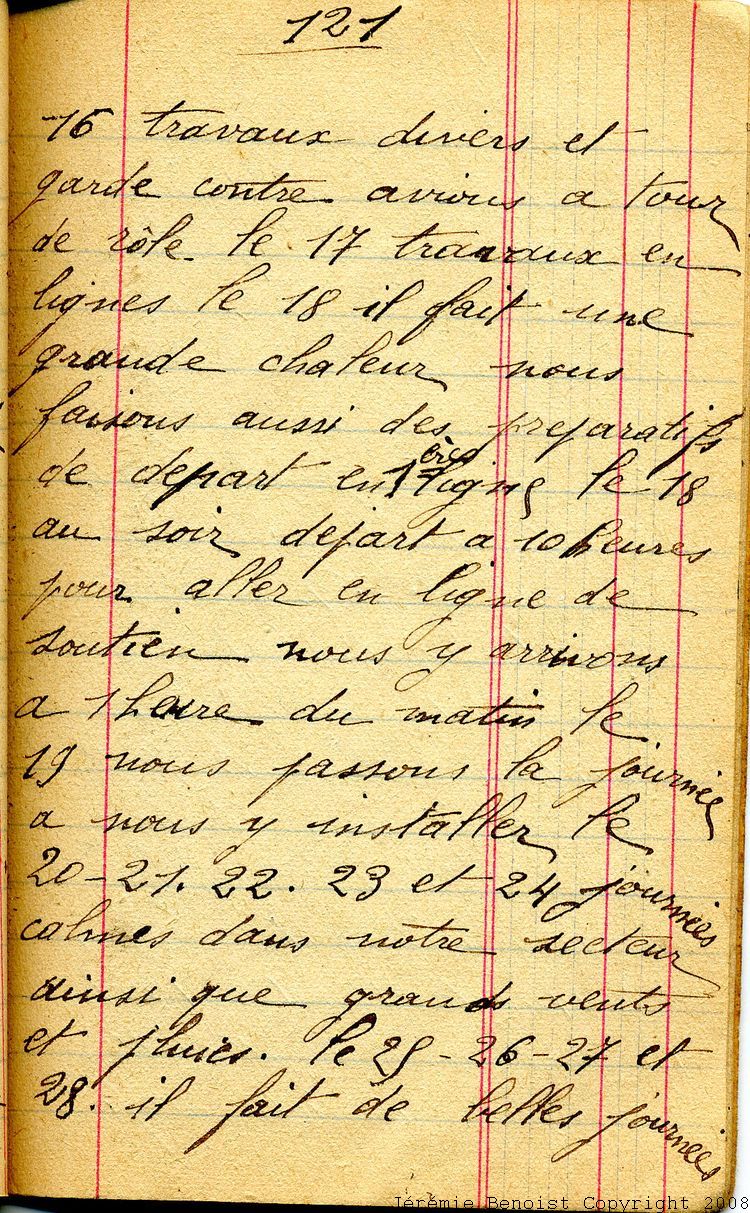 121
16 travaux divers et
garde contre avions a tour
de rôle le 17 travaux en
lignes le 18 il fait une
grande chaleur nous
faisons aussi des preparatifs
de depart en 1ères lignes le 18
au soir depart a 10 heures
pour aller en ligne de
soutien nous y arrivons
a 1 heure du matin le
19 nous passons la journée
a nous y installer le
20-21. 22. 23 et 24 journées
calmes dans notre secteur
ainsi que grands vents
et pluies. le 25-26-27 et
28. il fait de belles journées
Jérémie Benoist Copyright 2008